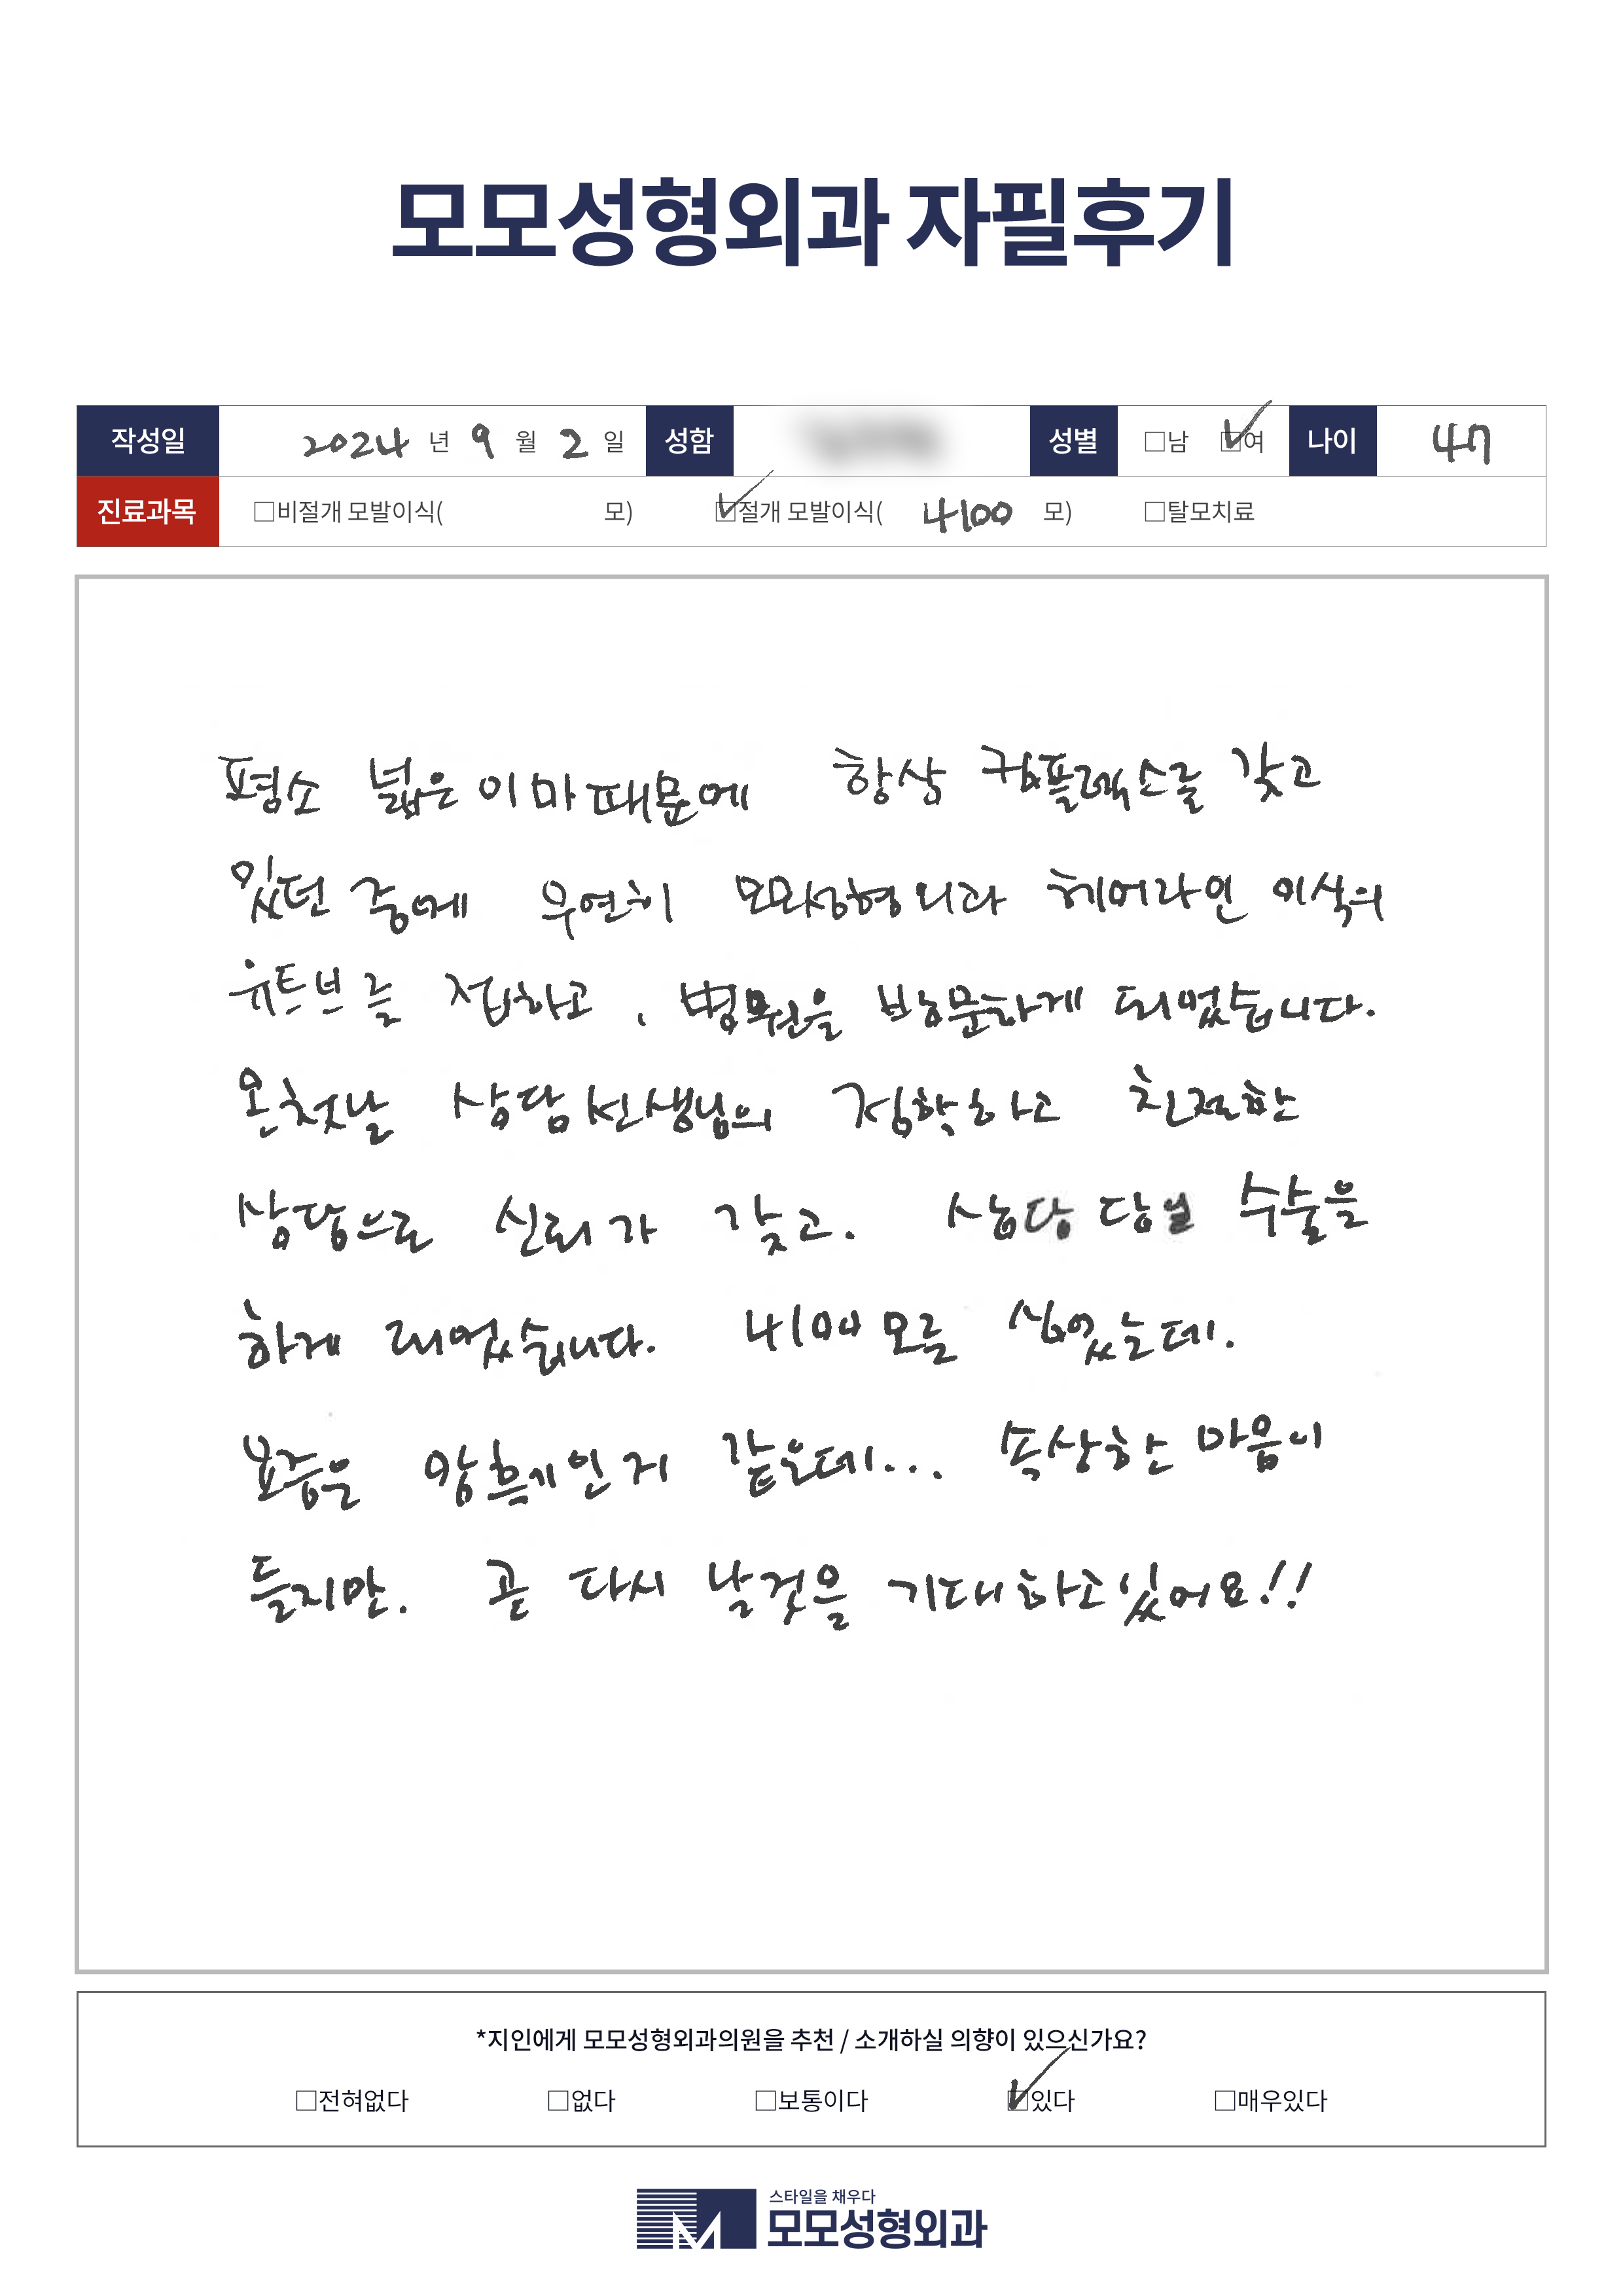 모모성형외과 자필후기
작성일 2024 년 9 월 2 일 성함 성별 □남 ☑여 나이 47
진료과목 □비절개 모발이식( 모) ☑절개 모발이식( 4100 모) □탈모치료
평소 넓은 이마 때문에 항상 컴플렉스를 갖고
있던 중에 우연히 모모성형외과 헤어라인 이식의
유튜브를 접하고, 병원을 방문하게 되었습니다.
온 첫날 상담 선생님의 정확하고 친절한
상담으로 신뢰가 갖고. 상담 당일 수술을
하게 되었습니다. 4100모를 심었는데.
요즘은 암흑기인지 같은데... 속상한 마음이
들지만. 곧 다시 날것을 기대하고 있어요!!
*지인에게 모모성형외과의원을 추천 / 소개하실 의향이 있으신가요?
□전혀없다 □없다 □보통이다 ☑있다 □매우있다
스타일을 채우다
모모성형외과